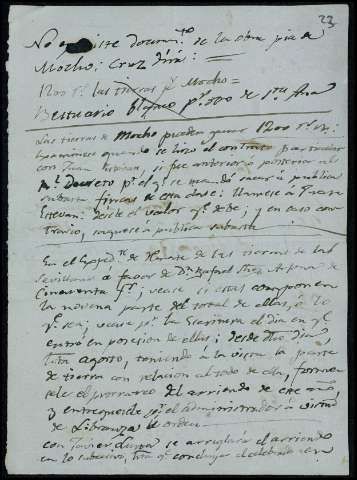 23
No existe docum.to de la obra pia de
Mocho: Cruz dirá: =
1200 r.s las tierras p.r Mocho =
Bestuario blanco p.a
Las tierras de Mocho pueden ganar 1200 r.s vn:
Examinese quando se hizo el contrato particular
con Juan, si fue anterior ó posterior al
R.l Decreto p.r el q.e se mandó sacar á publica
subasta fincas de esta clase: llamese á
Estevan: desde el valor q.e debe; y en caso con
trario, saquese á publica subasta
En el Exped.te de Remate de las tierras de las
Sevillanas á favor de D.n Rafael
Cincuenta f.s; vease si estas componen
la novena parte del total de ellas, ó lo
q.e sea; vease p.r la Escritura el dia en q.e
entró en posecion de ellas; desde dho dia
hta agosto, teniendo á la vista la parte
de tierra con relacion al todo de ella, forme
sele el prorrateo del arriendo de este año,
y entreguesele p.r el administrador á virtud
de Libranza de orden
con Javier se arreglará el arriendo
en lo subcesivo, hta q.e concluya el celebrado con